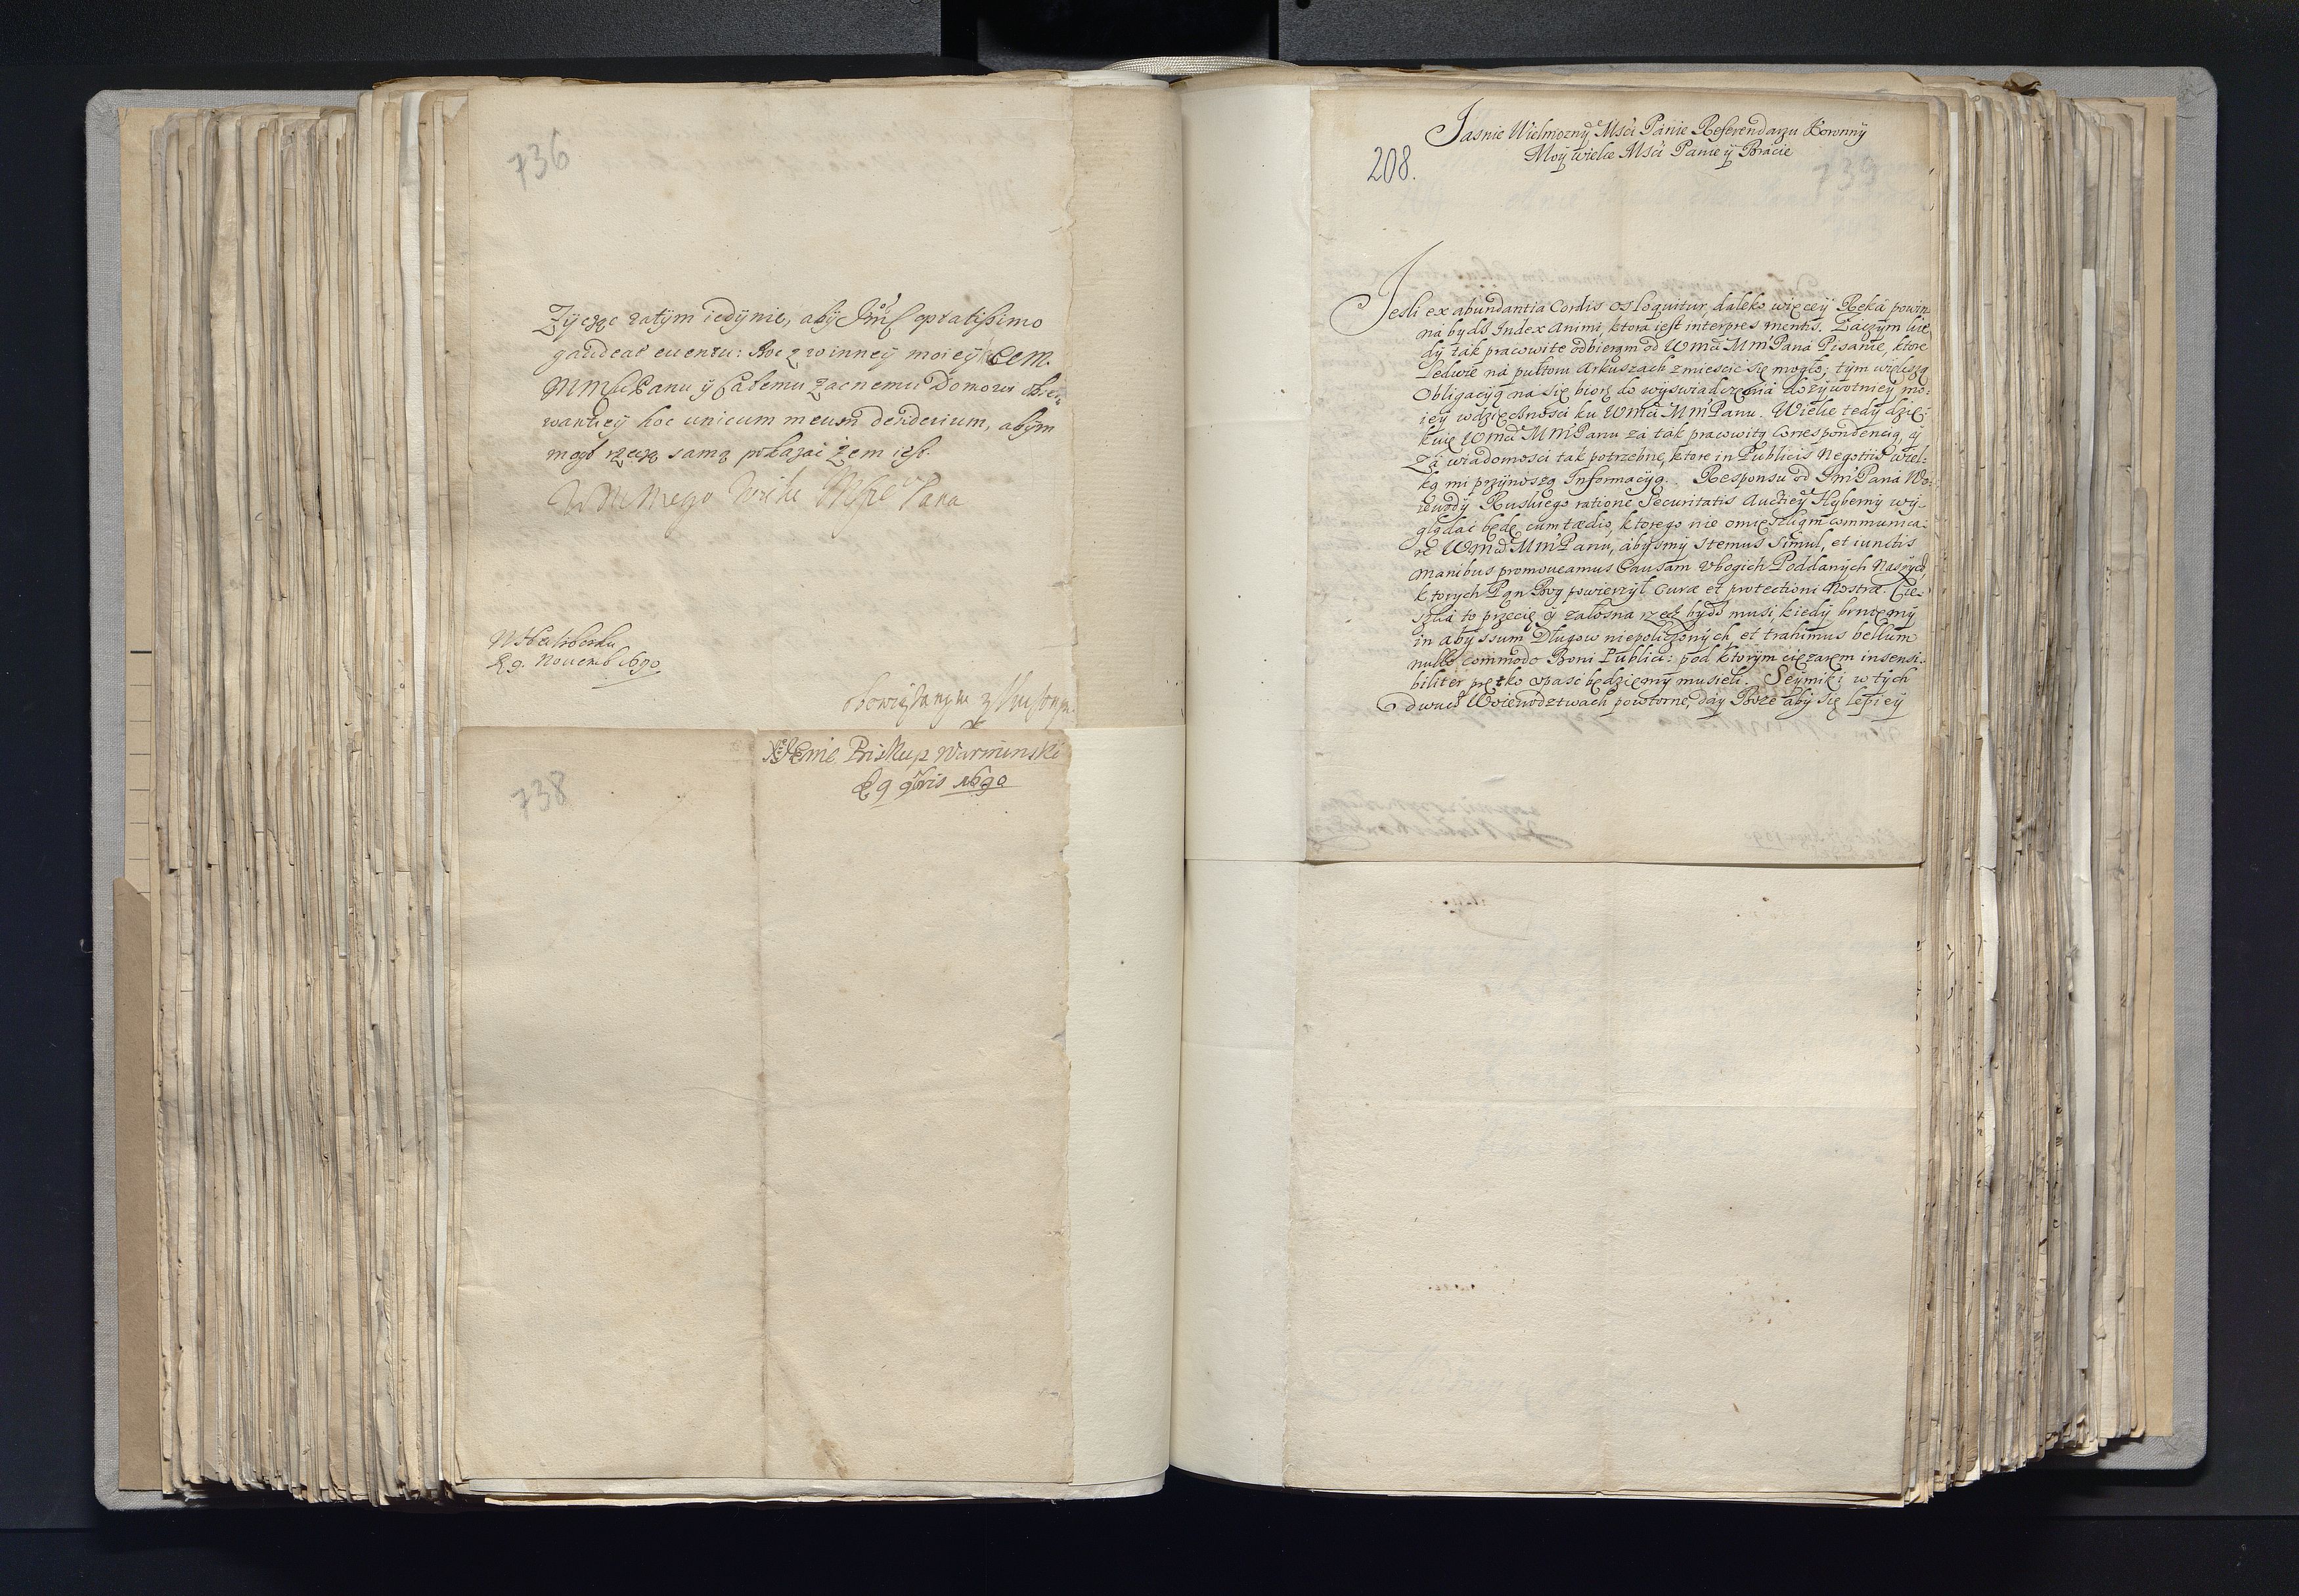 736
Zycząc zatym iedynie, aby Jmsć optatissimo
gaudeat euentu: Roc z winney moiey
Panu y całemu zacnemu Domowi
wantiey hoc unicum meum desiderium, abym
mogł rzeczą samą pokazać żem iest.
Pana
9. Nouemb 1690
obowiązanym
738
Biskup Warminski
9 9bris 1690
208.
739
Jasnie Wielmozny Msći Panie Referendarzu Koronny
Moy wielce Msći Panie y Bracie
Jesli ex abundantia Cordis os loquitur, daleko więcey Ręka powin-
na bydź Index Animi, ktora iest interpres mentis. Zaczym kie
dy tak pracowite odbieram od Wmći MmPana Pisanie, ktore
ledwie na pułtoru Arkuszach zmiescić się mogło; tym większą
Obligacyą na się biorę do wyswiadczenia dozywotniey mo:
iey wdzięcznosci ku Wmći MmPanu. Wielce tedy dzię:
kuię Wmći MmPanu za tak pracowitą Correspondencią, y
Za wiadomosci tak potrzebne, ktore in Publicis Negotiis wiel-
ką mi przynoszą Informacyą. Responsu od JmPana Wo:
iewody Ruskiego ratione Securitatis Hyberny wy-
glądać będę cum tædio, ktorego nie omieszkam communica:
re Wmći MmPanu, abysmy stemus simul, et iunctis
manibus promoueamus Causam Vbogich Poddanych Naszych,
ktorych Pan Bog powierzył Curæ et protectioni Nostræ. Cię-
szka to przecię y załosna rzecz bydź musi, kiedy brniemy
in abyssum Długow niepoliczonych, et trahimus bellum
nullo commodo Boni Publici: pod ktorym cięzarem insensi-
biliter prętko vpasć będziemy musieli. Seymiki w tych
dwuch Woiewodztwach powtorne, day Boze aby się lepiey